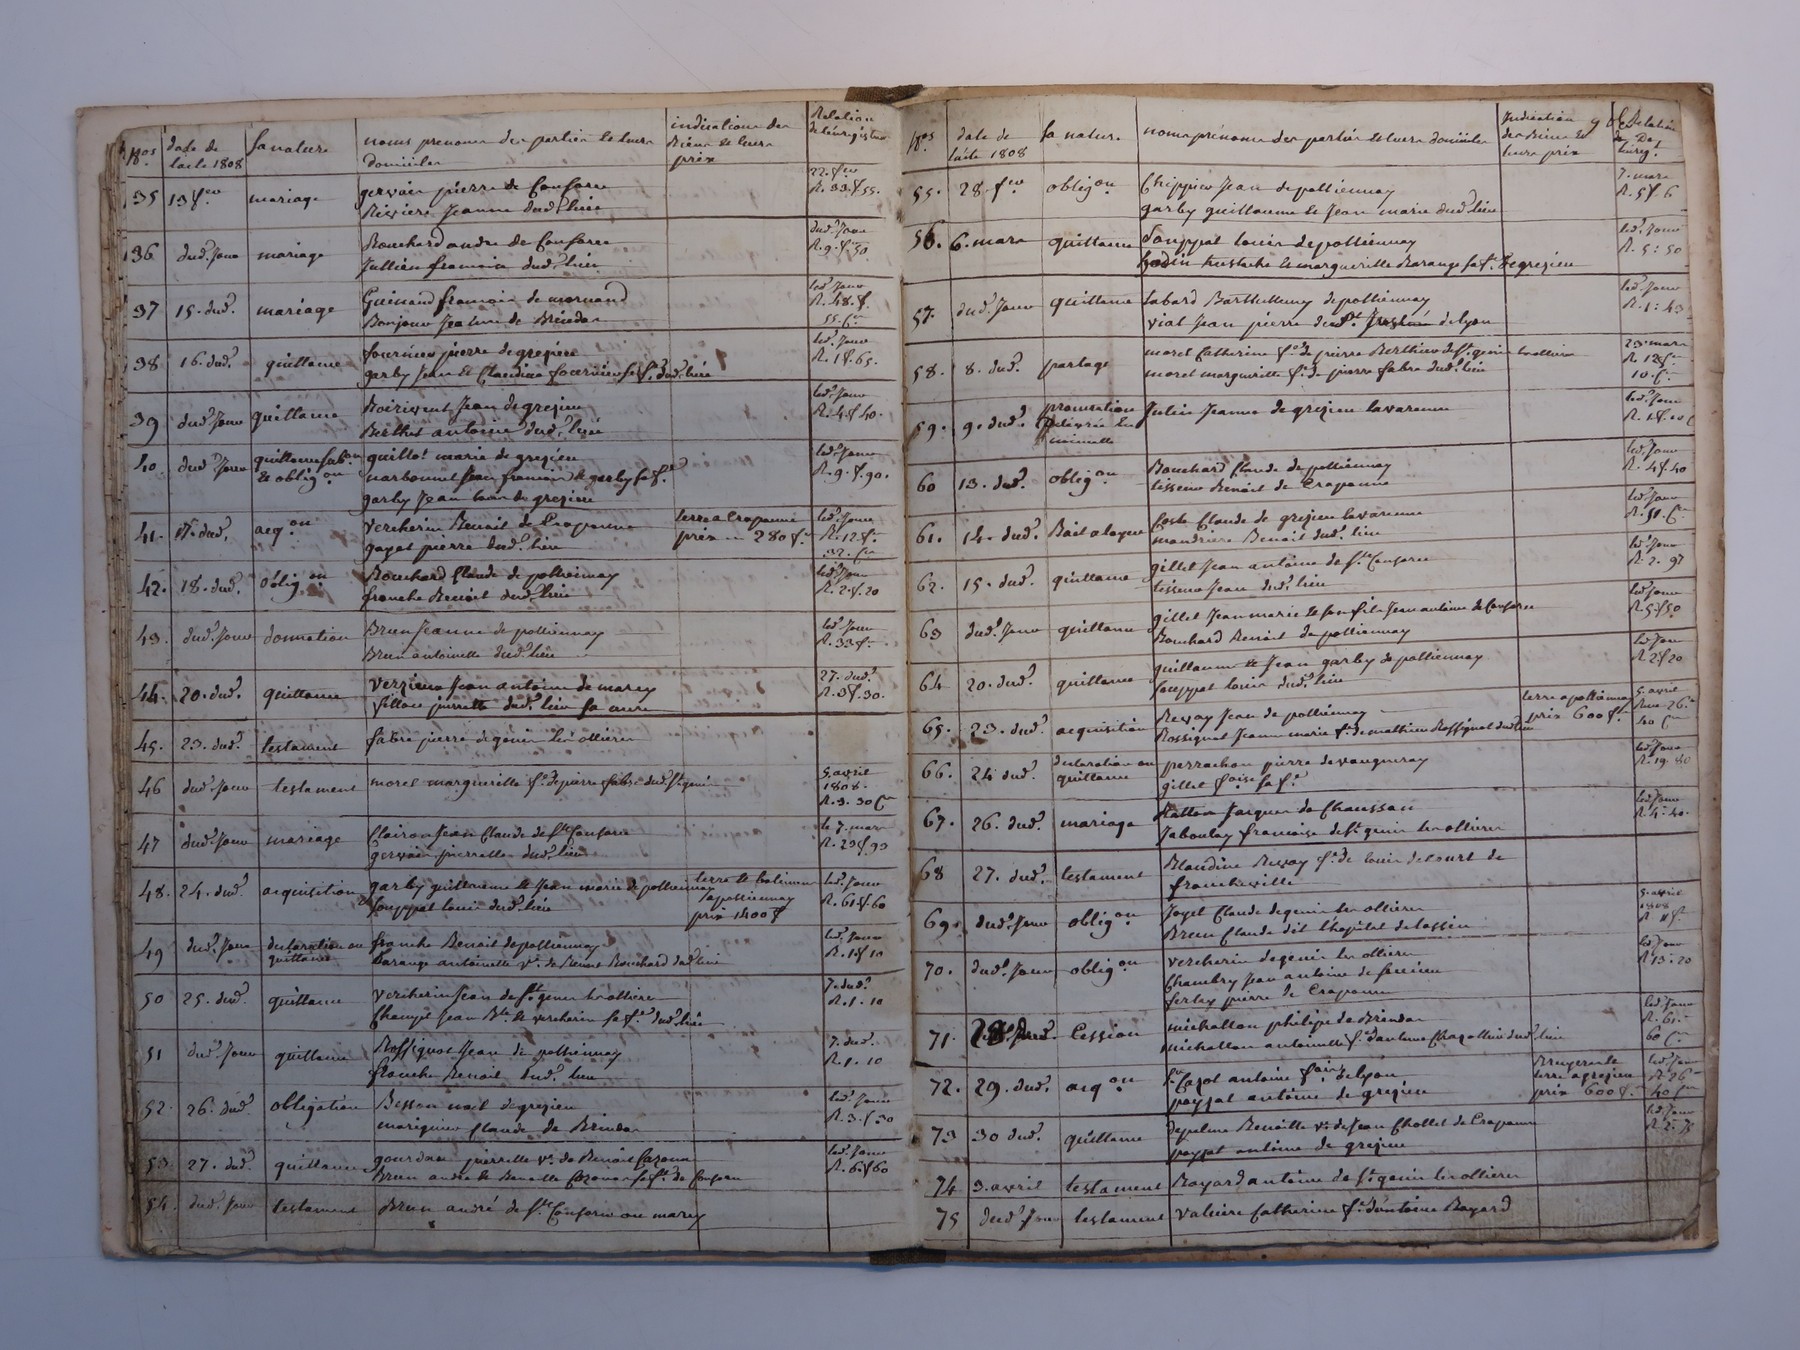 Nos
date de
l'acte 1808
sa nature
noms prénoms des parties et leurs
domiciles
indications des
biens et leurs
prix
Relation
de l'enregistrem
35 13 fer mariage gervais pierre de Consorce
Riviere Jeanne dud. lieu
22. fer
R. 33 f 55.
36 dud. Jour mariage Bouchard andre de Consorce
Jullien francois dud. lieu
dud. Jour
R. 9. f. 50
37 15. dud. mariage Guinand francois de mornand
Bonjour Jeanne de Brindas
led. Jour
R. 48. f.
55. C
38 16. dud. quittance fournier pierre de grezieu
garby Jean et Claudine fournier sa f. dud. lieu
led. Jour
R. 1 f. 65.
39 dud. Jour quittance Boirivent Jean de grezieu
Berthet antoine dud. lieu
led. Jour
R. 4 f. 40.
40. dud. Jour
et oblig on
quillot marie de grezieu
narbonnet Jean francois et garby sa f.
garby Jean louis de grezieu
led. Jour
R. 9. f. 90.
41. 17. dud. acq. on vercherin Benoit de Craponne
gayet pierre dud. lieu
terre a Craponne
prix 280 f.
led. Jour
R. 12 f.
32. C
42. 18. dud. oblig on Bouchard Claude de pollionnay
franche Benoit dud. lieu
led. Jour
R. 2. f. 20
43. dud. Jour donnation Brun Jeanne de pollionnay
Brun antoinette dud. lieu
led. Jour
R. 33 f.
44. 20. dud. quittance Verzieux Jean antoine de marcy
Villon pierrette dud. lieu sa mere
27. dud.
R. 3 f. 30.
45. 23. dud. testament fabre pierre de genis les ollieres
46 dud. Jour testament morel marguerite f. de pierre fabre dud. St genis
5. avril
1808.
R. 3. 30 C
47 dud. Jour mariage Clairon Jean Claude de Ste Consorce
Gervais pierrette dud. lieu
le 7. mars
R. 29 f 93
48. 24. dud. acquisition garby guillaume et Jean marie de pollionnay
souppat louis dud. lieu
terre et batimens
a pollionnay
prix 1400 f
led. Jour
R. 61 f. 60
49 dud. Jour declaration ou
quittance
franche Benoit de pollionnay
Barange antoinette ve. de Benoit Bouchard dud. lieu
led. Jour
R. 1 f 10
50 25. dud. quittance Vercherin Jean de St genis les ollieres
Jean Bte. et vercherin sa fe. dud. lieu
7. dud.
R. 1. 10
51 dud. Jour quittance Rossignol Jean de pollionnay
franche Benoit dud. lieu
7. dud.
R. 1. 10
52. 26. dud. obligation Besson noel de grezieu
marignier Claude de Brindas
led. Jour
R. 3. f 30
53 27. dud. quittance gourdan pierrette ve. de Benoit
Brun andre et Benoite sa f. de Consorce
led. Jour
R. 6 f 60
54. dud. Jour testament Brun andré de Ste. Consorce ou marcy
Nos
date de
l'acte 1808
sa nature
noms prénoms des parties et leurs domiciles
Indication
des biens et
leurs prix
9
Relation
De
l'enreg t.
55. 28. fer oblig on Chippier Jean de pollionnay
garby guillaume et Jean marie dud. lieu
7. mars
R. 5 f. 6
56. 6. mars quittance Souppat louis de pollionnay
Eustache et marguerite Barange sa f. de grezieu
led. Jour
R. 5: 50
57. dud. Jour quittance labard Barthellemy de pollionnay
vial Jean pierre de lyon
led. Jour
R. 1: 43
58. 8. dud. partage morel Catherine fe. de pierre Berthier de St. genis les ollieres
morel marguerite f. de pierre fabre dud. lieu
23. mars
R. 12 f.
10. C
59. 9. dud. procuration
delivrée en
minutte
Julin Jeanne de grezieu lavarenne
led. Jour
R. 1 f. 10 C
60 13. dud. oblig. on Bouchard Claude de pollionnay
tisseur Benoit de Craponne
led. Jour
R. 4 f. 40
61. 14. dud. Bail a loyer Coste Claude de grezieu lavarenne
mandriere Benoit dud. lieu
led. Jour
R. 51. C
62. 15. dud. quittance gillet Jean antoine de Ste. Consorce
tisseur Jean dud. lieu
led. Jour
R. 2. 97
63 dud. Jour quittance gillet Jean marie et son fils Jean antoine de Consorce
Bouchard Benoit de pollionnay
led. Jour
R. 5 f 50
64 20. dud. quittance guillaume et Jean garby de pollionnay
souppat louis dud. lieu
led. Jour
R. 2 f 20
65. 23. dud. acquisition Revay Jean de pollionnay
Rossignol Jeanne marie f. de mathieu Rossignol dud. lieu
terre a pollionnay
prix 600 f.
5. avril
26.
40 C
66. 24 dud. declaration ou
quittance
perrachon pierre de vaugneray
gillet f.oise sa f.
led. Jour
R. 19. 80
67. 26. dud. mariage Ratton Jacques de Chaussan
Jaboulay francoise de St. genis les ollieres
led. Jour
R. 4: 40.
68 27. dud. testament Blandine Revay f. de louis decourt de
francheville
69. dud. Jour oblig. on Joyet Claude de genis les ollieres
Brun Claude dit l'hopital de lossin
5. avril
1808
R. 11 f.
70. dud. Jour oblig. on vercherin de genis les ollieres
Chambry Jean antoine de
ferlay pierre de Craponne
led. Jour
R 13. 20
71. 28. dud. Cession michallon philipe de Brindas
michallon antoinette f. d'antoine dud. lieu
led. Jour
R. 61.
60 C.
72. 29. dud. acq. on Sr. Cazot antoine de lyon
payzat antoine de grezieu
Bruyere et
terre a grezieu
prix 600 f.
led. Jour
R. 26
40 C
73 30 dud. quittance Benoitte ve. de Jean Chollet de Craponne
payzat antoine de grezieu
led. Jour
R. 2. 75
74 3. avril testament Bayard antoine de St. genis les ollieres
75 dud. Jour testament valliere Catherine f. d'antoine Bayard